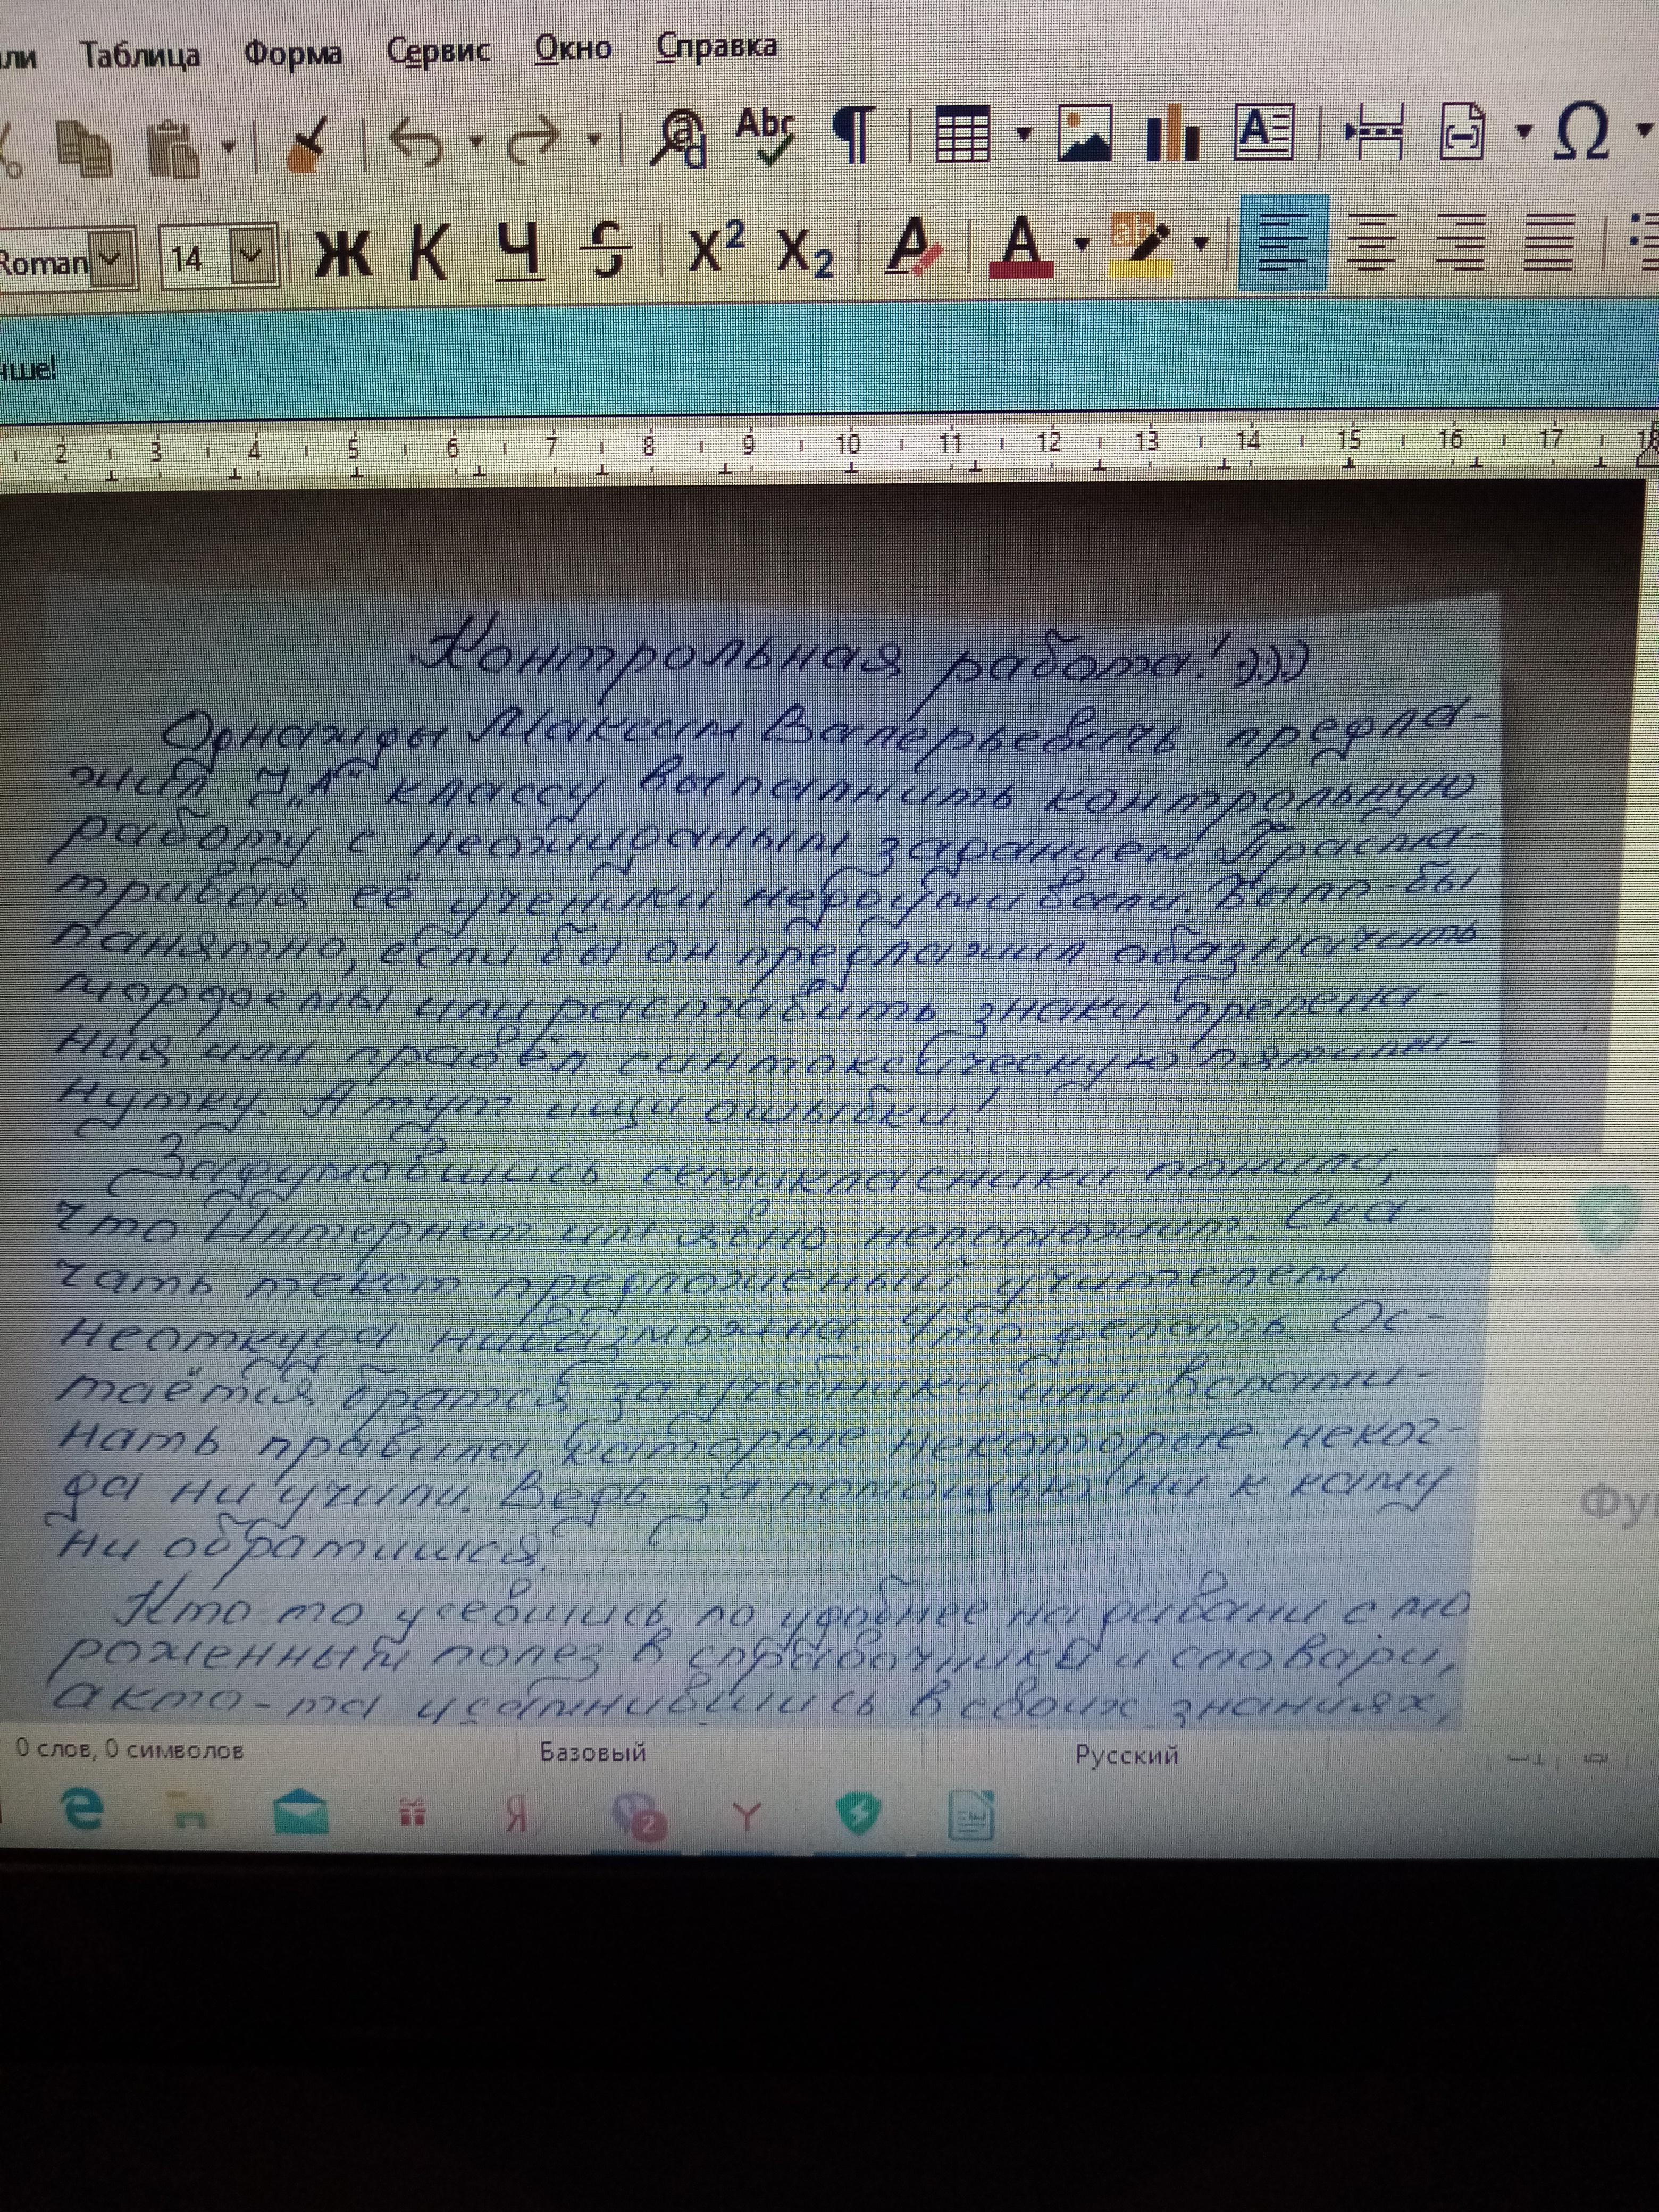 ли Таблица Форма Сервис Окно Справка
Abc
Roman 14 Ж К Ч S X² X₂ A A ab
чше!
2 3 4 5 6 7 8 9 10 11 12 13 14 15 16 17 18
Контрольная работа! :)))
Однажды Максим Валерьевичь предла-
жил 7„А" классу выпалнить контрольную
работу с неожиданым заданием. Прасма-
тривая её ученики недоумивали. Было-бы
панятно, если бы он предлажил обазначить
морфемы или расставить знаки препена-
ния или правёл синтоксическую пятими-
нутку. А тут ищи ошыбки!
Задумавшись семикласники поняли,
что Интернет им явно непоможит. Ска-
чать текст предложеный учителем
неоткуда нивазможна. Что делать. Ос-
таётся братся за учебники или вспами-
нать правила каторые некоторые неког-
да ни учили. Ведь за помощью ни к каму
ни обратишся.
Кто то усевшись по удобнее на дивани с мо
роженным полез в справочники и словари,
акто-та усамнившись в своих знаниях,
Фу
0 слов, 0 символов Базовый Русский
Я 2 Y